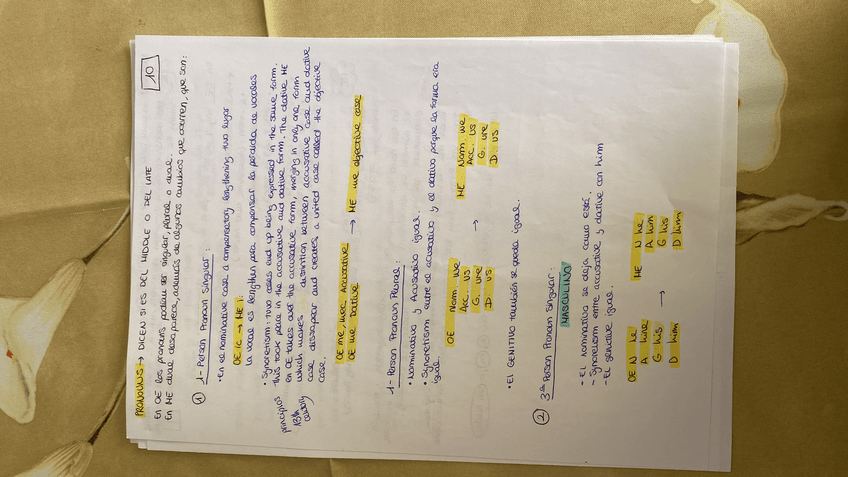 10
PRONOUNS → DICEN SI ES DEL MIDDLE O DEL LATE
En OE los pronouns podian ser singular, plural o dual.
En ME dual desaparece, además de algunos cambios que ocurren, que son:
1 1- Person Pronoun Singular:
• En el nominative case a compensatory lengthening tuvo lugar
OE: ic → ME i:
La vocal es lengthen para compensar la pérdida de vocales
• Syncretism: two cases end up being expressed in the same form.
This took place in the accusative and dative form. The dative ME
in OE takes out the accusative form, merging in only one form
which makes distinction between accusative case and dative
case dissapear and creates a united case called the objective
case.
principios
13th
century
OE me, mec Accusative
OE me Dative → ME me objective case
1- Person Pronoun Plural:
• Nominativo y Acusativo igual.
• Syncretism entre el acusativo y el dativo porque la forma era
igual.
OE Nom. we
Acc. us
G. ure
D. us
→
ME Nom. we
Acc. us
G. ure
D us
• El GENITIVO también se queda igual.
2 3th Person Pronoun Singular:
MASCULINO
- El nominativo se deja como está.
- Syncretism entre accusative y dative con him
- El genitive igual.
OE N he
A hine
G his
D him
→
ME N he
A him
G his
D him